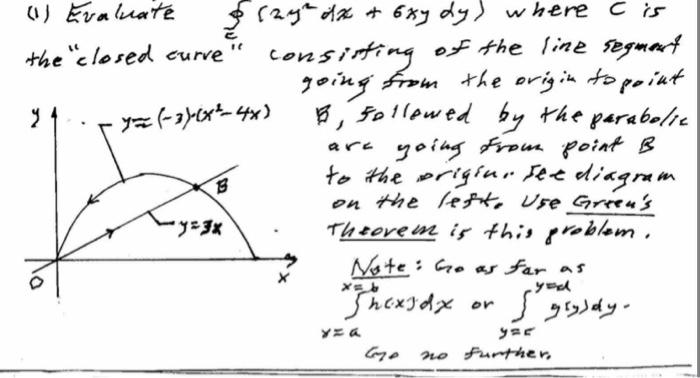 (1) Evaluate ∮ (2y² dx + 6xy dy) where C is
C
the "closed curve" consisting of the line segment
going from the origin to point
B, followed by the parabolic
arc going from point B
to the origin. See diagram
on the left. Use Green's
Theorem is this problem.
y
y=(-3)·(x²-4x)
B
y=3x
O
x
Note: Go as far as
x=b y=d
∫h(x)dx or ∫ g(y)dy.
x=a y=c
Go no further.